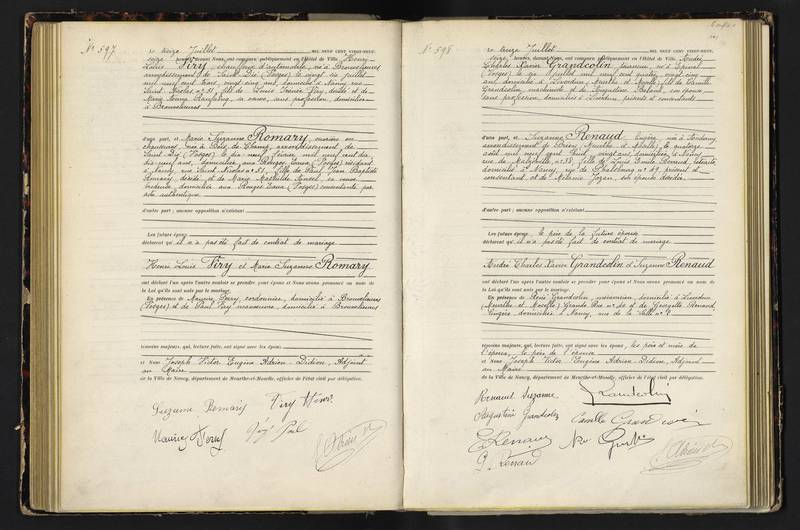 No 597
Le treize Juillet MIL NEUF CENT VINGT-NEUF,
seize heures, devant Nous, ont comparu publiquement en l'Hôtel de Ville Henri
Louis Viry, chauffeur d'automobile, né à Brouvelieures
arrondissement de Saint-Dié (Vosges) le vingt six juillet
mil neuf cent trois, vingt cinq ans, domicilié à Nancy, rue
Saint Nicolas no 51, fils de Louis Viry, décédé et de
Marie
à Brouvelieures
d'une part, et Marie Suzanne Romary, ouvrière en
chaussures, née à Bois de Champ, arrondissement de
Saint Dié (Vosges) le dix neuf février mil neuf cent dix
dix neuf ans, domiciliée aux Rouges Eaux (Vosges) résidant
à Nancy, rue Saint Nicolas no 51, fille de Paul Jean Baptiste
Romary, décédé et de Marie Mathilde sa veuve
domiciliée aux Rouges Eaux (Vosges) consentante par
acte authentique.
d'autre part ; aucune opposition n'existant
Les futurs époux
déclarent qu'il n'a pas été fait de contrat de mariage.
Henri Louis Viry et Marie Suzanne Romary
ont déclaré l'un après l'autre vouloir se prendre pour époux et Nous avons prononcé au nom de
la Loi qu'ils sont unis par le mariage.
En présence de Maurice cordonnier, domicilié à Brouvelieures
(Vosges) et de Paul Viry domicilié à Brouvelieures
témoins majeurs, qui, lecture faite, ont signé avec les époux
et Nous Joseph Victor Eugène Adrien Didion, Adjoint
au Maire
de la Ville de Nancy, département de Meurthe-et-Moselle, officier de l'état civil par délégation.
Suzanne Romary Viry Henri
Maurice Viry Paul
No 598
Le treize Juillet MIL NEUF CENT VINGT-NEUF,
seize heures, devant Nous, ont comparu publiquement en l'Hôtel de Ville André
Charles Xavier Grandcolin, né à Epinal
(Vosges) le six juillet mil neuf cent quatre, vingt cinq
ans, domicilié à Liverdun, Meurthe et Moselle, fils de Camille
Grandcolin, et de Augustine son épouse,
sans profession, domiciliés à Liverdun, présents et consentants
d'une part, et Suzanne Renaud, née à
arrondissement de Briey (Meurthe et Moselle) le quatorze
août mil neuf cent huit, vingt ans, domiciliée à Nancy,
rue de Malzéville no 38, fille de Louis Emile Renaud, retraité
domicilié à Nancy, rue de Phalsbourg no 69, présent et
consentant, et de Mélanie son épouse décédée
d'autre part ; aucune opposition n'existant
Les futurs époux, le père de la future épouse
déclarent qu'il n'a pas été fait de contrat de mariage.
André Charles Xavier Grandcolin et Suzanne Renaud
ont déclaré l'un après l'autre vouloir se prendre pour époux et Nous avons prononcé au nom de
la Loi qu'ils sont unis par le mariage.
En présence de René Grandcolin, mécanicien, domicilié à Liverdun
(Meurthe et Moselle) Grande Rue et de Georgette Renaud,
domiciliée à Nancy, rue de la
témoins majeurs, qui, lecture faite, ont signé avec les époux, les père et mère de
l'époux, le père de l'épouse
et Nous Joseph Victor Eugène Adrien Didion, Adjoint
au Maire
de la Ville de Nancy, département de Meurthe-et-Moselle, officier de l'état civil par délégation.
Renaud Suzanne Grandcolin
Augustine Grandcolin Camille Grandcolin
E. Renaud
G. Renaud